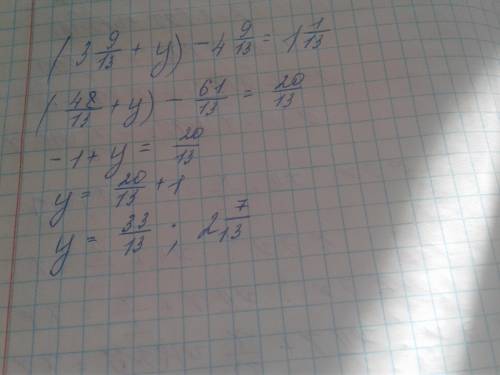 (3 9/13 + y) - 4 9/13 = 1 1/13
(48/13 + y) - 61/13 = 20/13
-1 + y = 20/13
y = 20/13 + 1
y = 33/13 ; 2 7/13